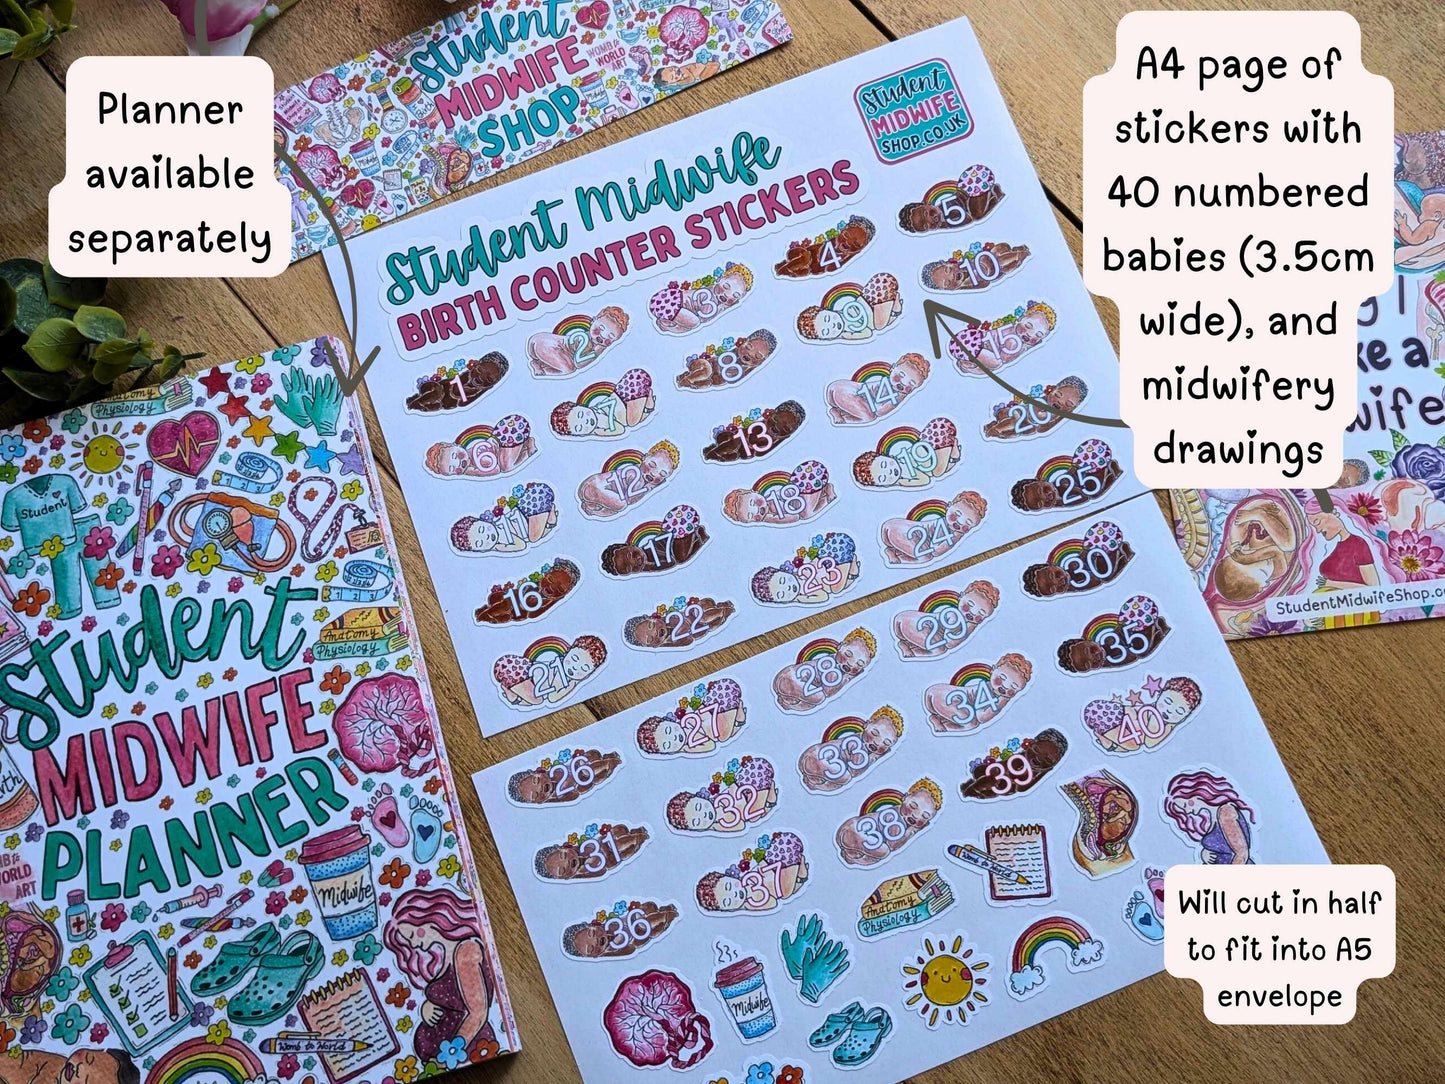 Planner
available
separately
A4 page of
stickers with
40 numbered
babies (3.5cm
wide), and
midwifery
drawings
Will cut in half
to fit into A5
envelope
Student
MIDWIFE
SHOP
WOMB to
WORLD
ART
Student
MIDWIFE
SHOP.CO.UK
Student Midwife
BIRTH COUNTER STICKERS
1
2
3
4
5
6
7
8
9
10
11
12
13
14
15
16
17
18
19
20
21
22
23
24
25
26
27
28
29
30
31
32
33
34
35
36
37
38
39
40
Womb to World
Anatomy
Physiology
Midwife
Anatomy
Physiology
Student
Anatomy
Physiology
Student
MIDWIFE
PLANNER
WORLD
ART
Midwife
Womb to World
StudentMidwifeShop.co